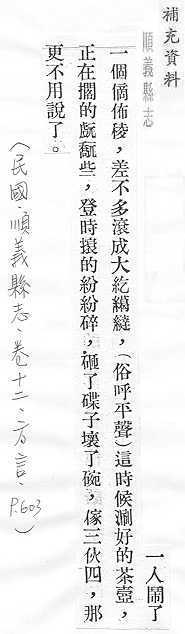 補充資料
順義縣志
一人鬧了
一個佈稜，差不多滾成大紇縫，（俗呼平聲）這時候涮好的茶壺，
正在擱的些，登時的紛紛碎，砸了碟子壞了碗，傢三伙四，那
更不用說了。
（民國、順義縣志、卷十二、方言、P.603）